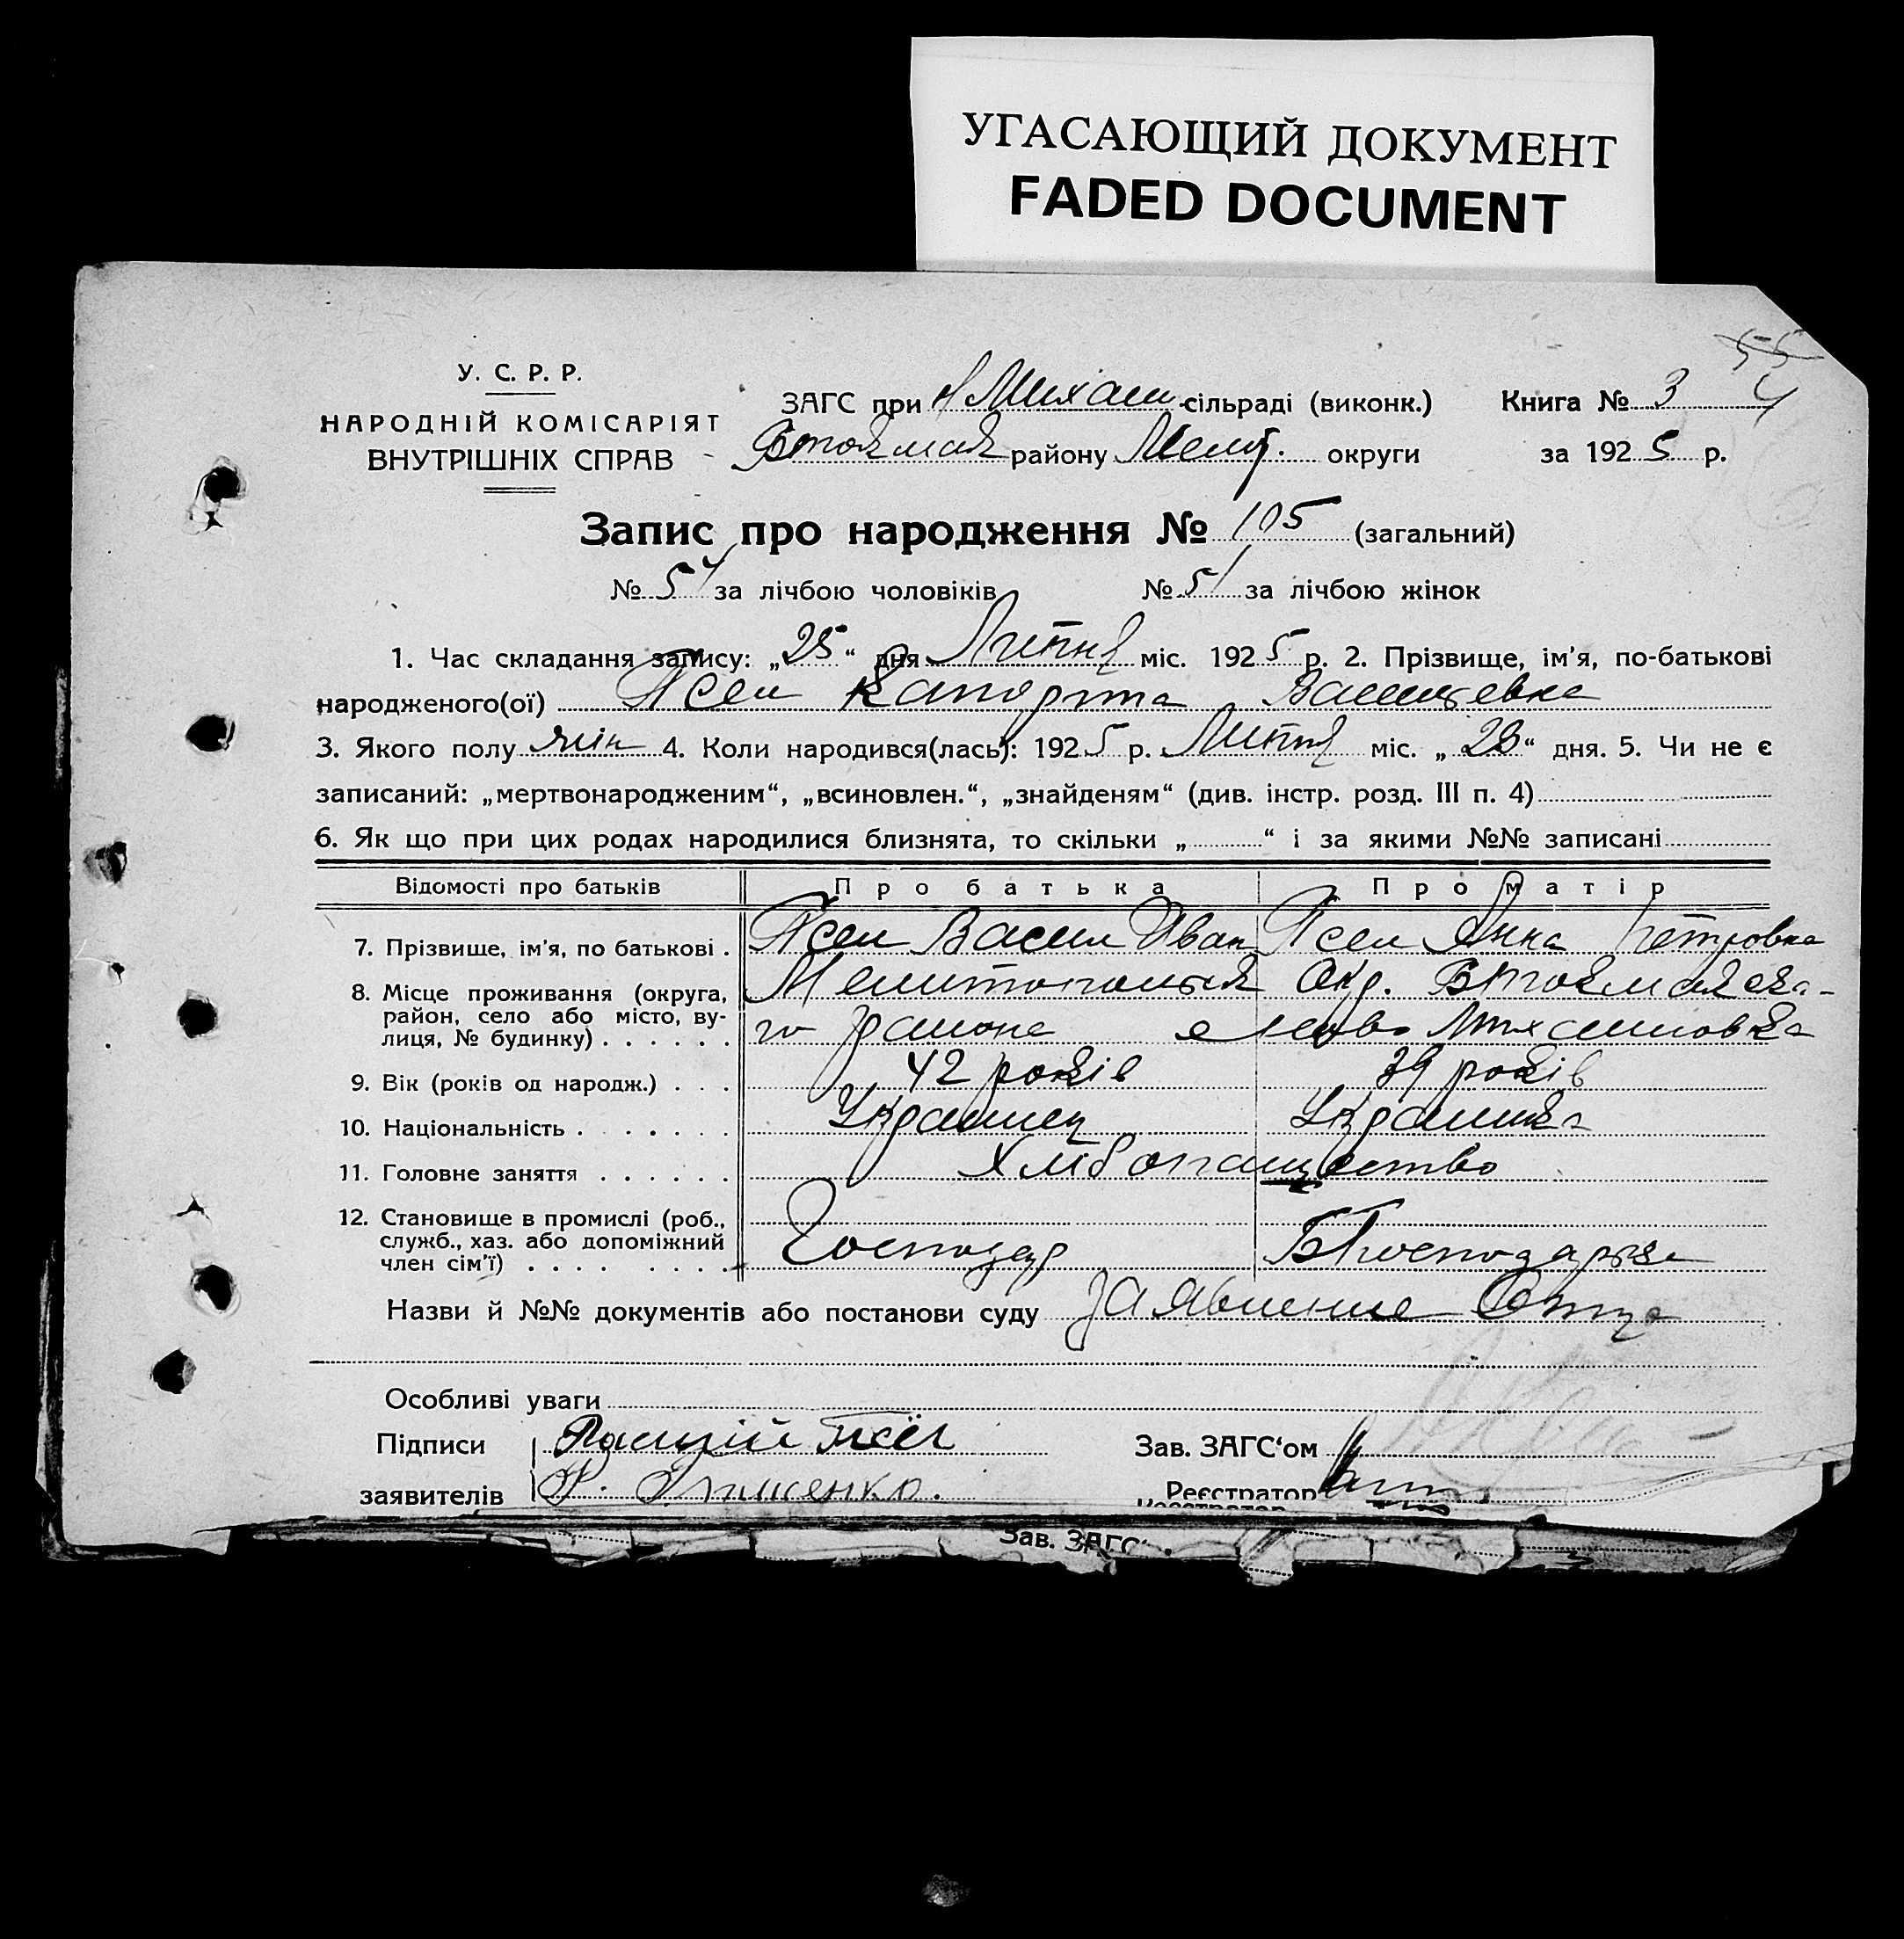 УГАСАЮЩИЙ ДОКУМЕНТ
FADED DOCUMENT
У. С. Р. Р.
НАРОДНІЙ КОМІСАРІЯТ
ВНУТРІШНІХ СПРАВ
ЗАГС при Н Михайл сільраді (виконк.) Книга № 3
району Меліт. округи за 1925 р.
Запис про народження № 105 (загальний)
№ 54 за лічбою чоловіків № 51 за лічбою жінок
1. Час складання запису: „25“ дня Липня міс. 1925 р. 2. Прізвище, ім'я, по-батькові
народженого(ої) Псел Василевна
3. Якого полу жін 4. Коли народився(лась): 1925 р. Липня міс. „23“ дня. 5. Чи не є
записаний: „мертвонародженим“, „всиновлен.“, „знайденям“ (див. інстр. розд. III п. 4)
6. Як що при цих родах народилися близнята, то скільки „ “ і за якими №№ записані
Відомості про батьків Про батька Про матір
7. Прізвище, ім'я, по батькові . Псел Васил Иван Псел Анна Петровна
8. Місце проживання (округа, район, село або місто, вулиця, № будинку) . . . . . . Окр.
го района Ново Михайловка
9. Вік (років од народж.) . . . 42 років 39 років
10. Національність . . . . . . Украинец Украинка
11. Головне заняття . . . . . .
12. Становище в промислі (роб.,
служб., хаз. або допоміжний
член сім'ї) . . . . . . . . Господар
Назви й №№ документів або постанови суду заявление Отца
Особливі уваги
Підписи Зав. ЗАГС‘ом
заявителів Реєстратор
Зав. ЗАГС